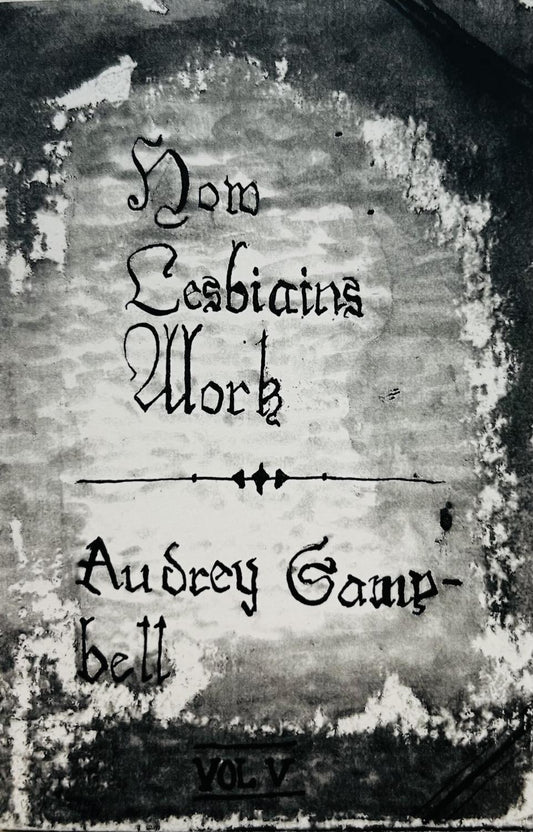 How
Lesbiains
Work
Audrey Gamp-
bell
VOL V